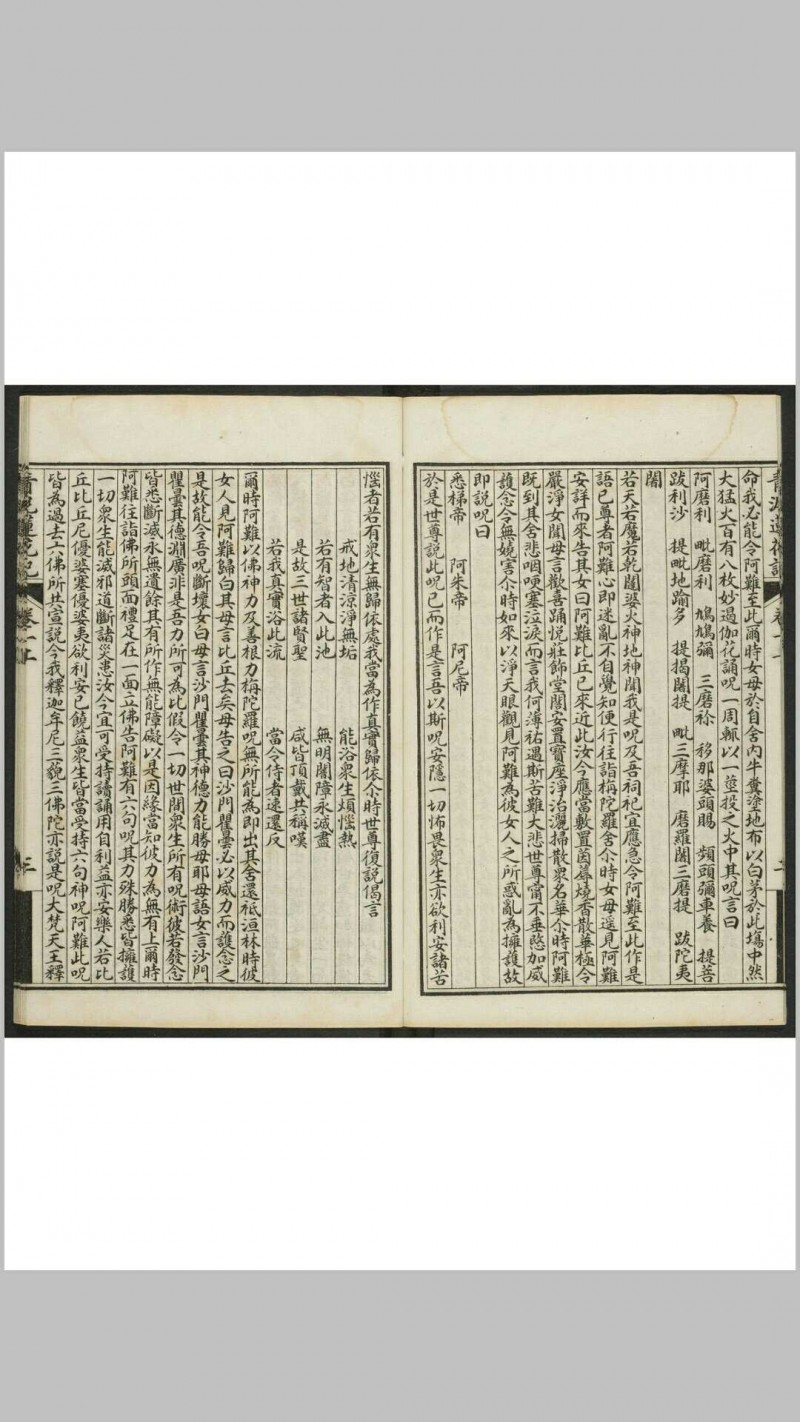 命我必能令阿難至此爾時女母於自舍內牛糞塗地布以白茅於此場中然
大猛火百有八枚妙遏伽花誦呪一周輒以一莖投之火中其呪言曰
阿磨利 毗磨利 鳩鳩彌 三磨祢 移那婆頭賜 頻頭彌車養 提菩
跋利沙 提毗地踰多 提揭闍提 毗三摩耶 磨羅闍三磨提 跋陀夷
闍
若天若魔若乾闥婆火神地神聞我是呪及吾祠祀宜應急令阿難至此作是
語已尊者阿難心即迷亂不自覺知便行往詣栴陀羅舍尒時女母遥見阿難
安詳而來告其女曰阿難比丘已來近此汝今應當敷置茵蓐燒香散華極令
嚴淨女聞母言歡喜踊悅莊飾堂閣安置寶座淨治灑掃散衆名華尒時阿難
既到其舍悲咽哽塞泣淚而言我何薄祐遇斯苦難大悲世尊甯不垂愍加威
護念令無嬈害尒時如來以淨天眼觀見阿難為彼女人之所惑亂為擁護故
即說呪曰
悉梯帝 阿朱帝 阿尼帝
於是世尊說此呪已而作是言吾以斯呪安隱一切怖畏衆生亦欲利安諸苦
惱者若有衆生無歸依處我當為作真實歸依尒時世尊復說偈言
戒地清涼淨無垢 能浴衆生煩惱熱
若有智者入此池 無明闇障永滅盡
是故三世諸賢聖 咸皆頂戴共稱嘆
若我真實浴此流 當令侍者速還反
爾時阿難以佛神力及善根力栴陀羅呪無所能為即出其舍還祇洹林時彼
女人見阿難歸白其母言比丘去矣母告之曰沙門瞿曇必以威力而護念之
是故能令吾呪斷壞女白母言沙門瞿曇其神德力能勝母耶母語女言沙門
瞿曇其德淵廣非是吾力所可為比假令一切世間衆生所有呪術彼若發念
皆悉斷滅永無遺餘其有所作無能障礙以是因緣當知彼力為無有上爾時
阿難往詣佛所頭面禮足在一面立佛告阿難有六句呪其力殊勝悉皆擁護
一切衆生能滅邪道斷諸災患汝今宜可受持讀誦用自利益亦安樂人若比
丘比丘尼優婆塞優婆夷欲利安已饒益衆生皆當受持六句神呪阿難此呪
皆為過去六佛所共宣說今我釋迦牟尼三藐三佛陀亦說是呪大梵天王釋
三